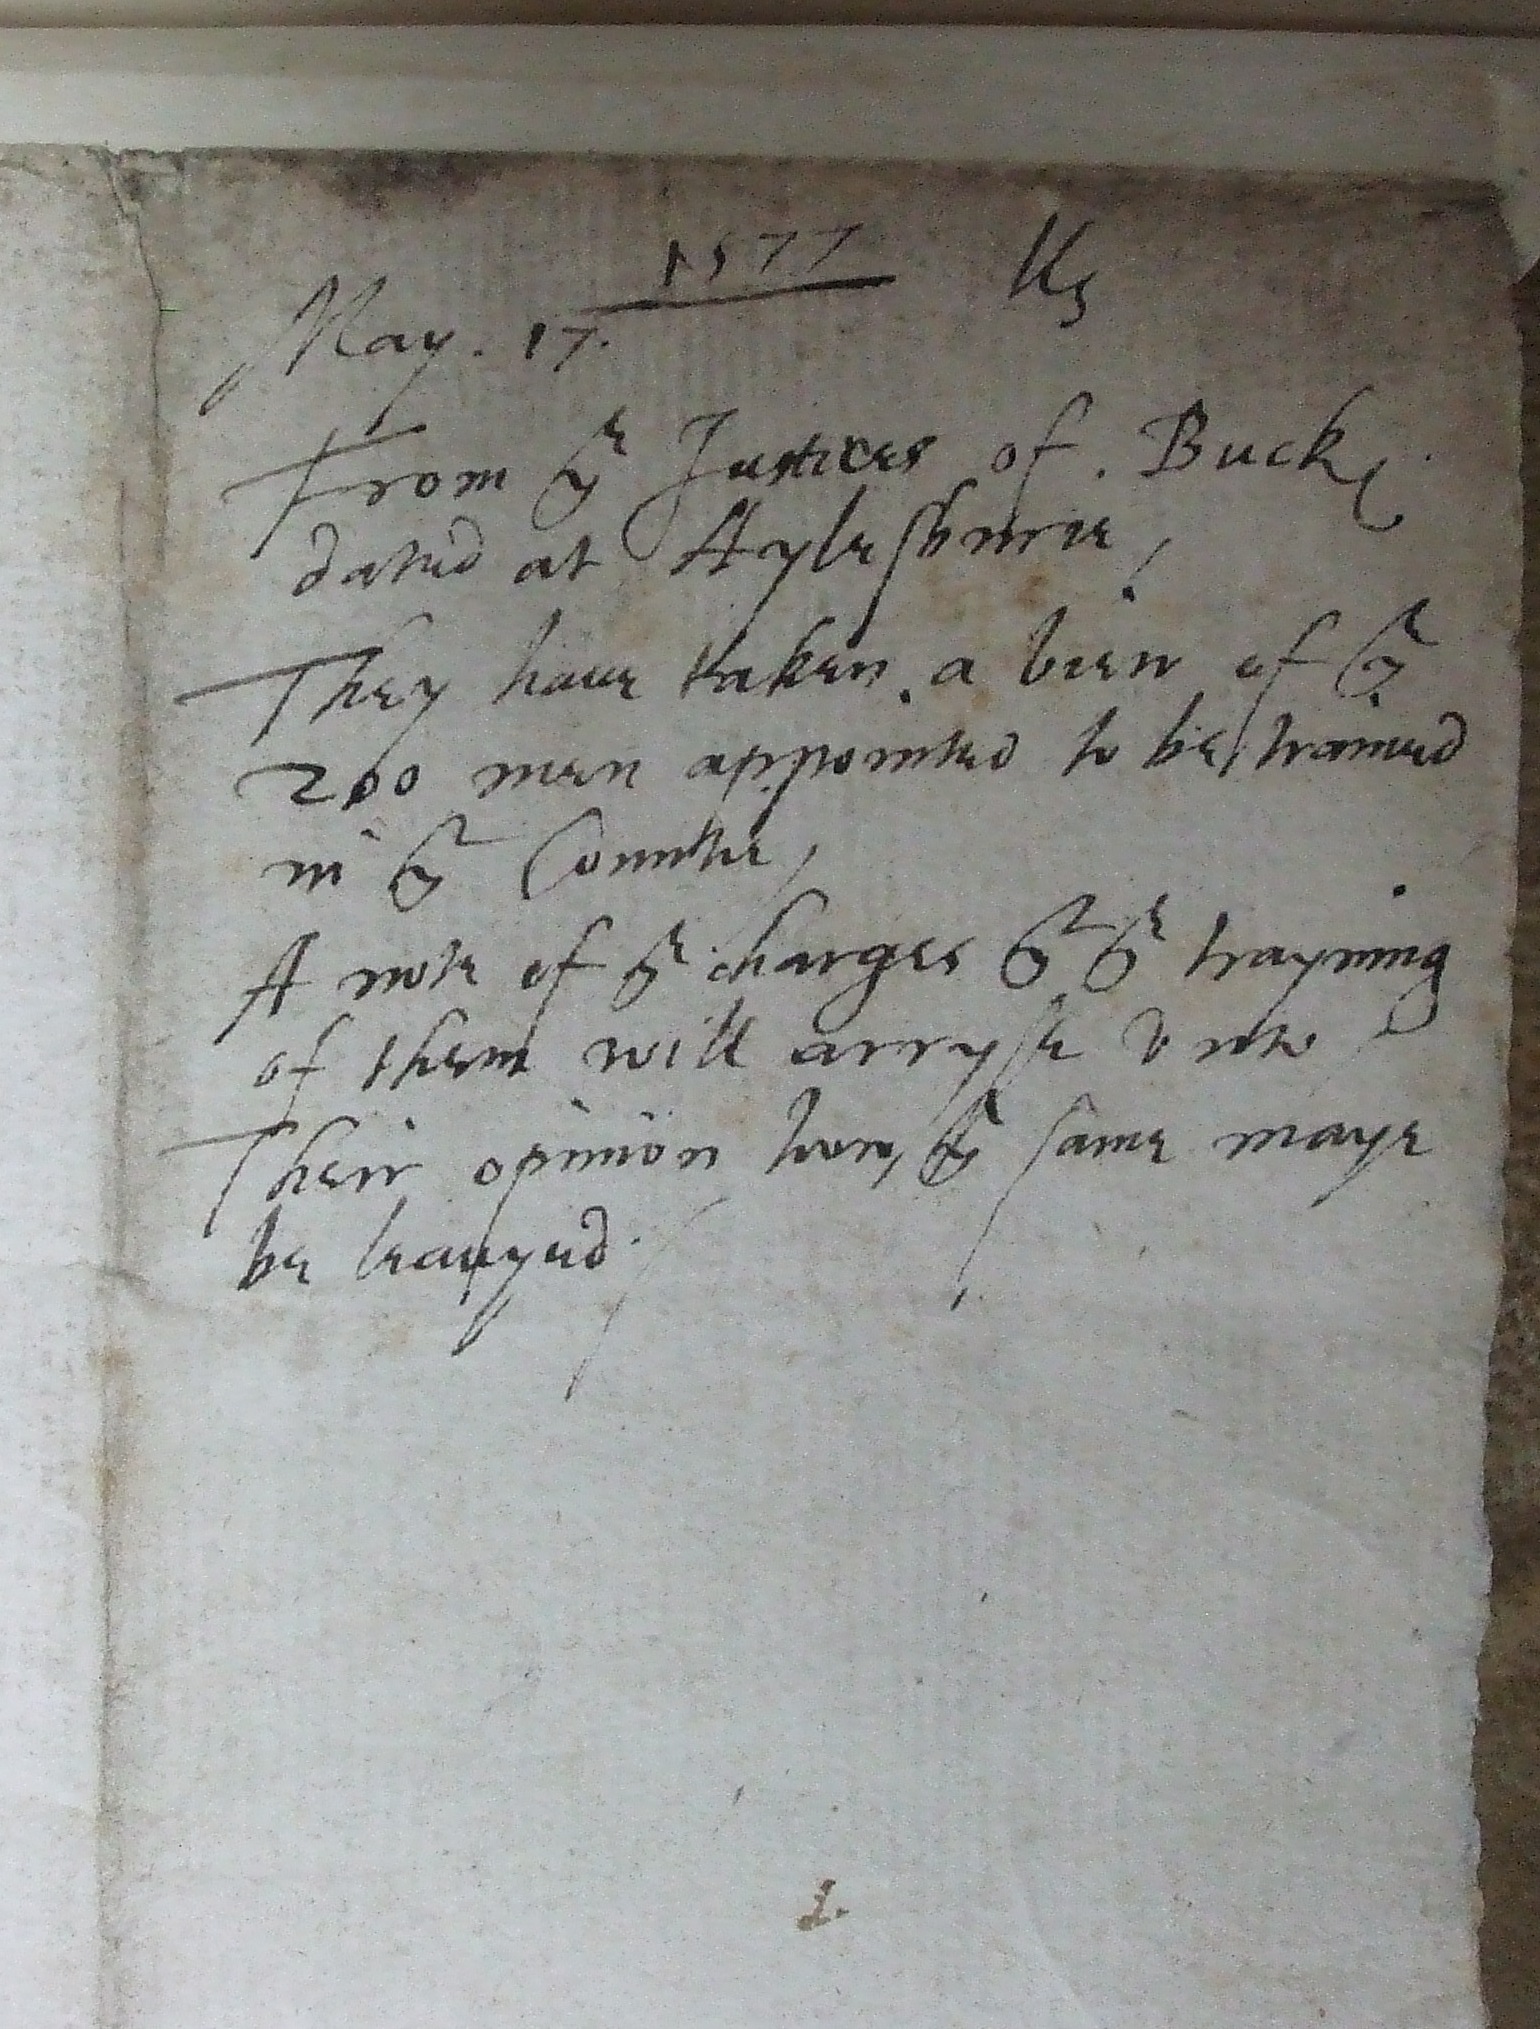 1577
May. 17.
From yᵉ Justices of. Buck
dated at Aylesburie,
They haue taken a view of yᵉ
200 men appointed to be trained
in yᵗ Countie,
A note of yᵉ charges yᵗ yᵉ trayning
of them will arryse vnto
Their opinion how yᵉ same maye
be leauyed.